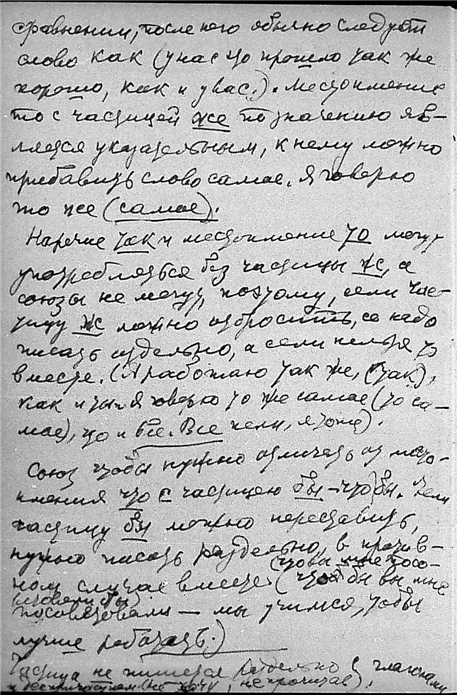 сравнении, после него обычно следует
слово как (у нас то прошло так же
хорошо, как и у вас.). Местоимение
то с частицей же по значению яв-
ляется указательным, к нему можно
прибавить слово самое. Я говорю
то же (самое).
Наречие так и местоимение то могут
употребляться без частицы ж, а
союзы не могут, поэтому, если час-
тицу ж можно отбросить, то надо
писать отдельно, а если нельзя то
вместе. (Я работаю так же, (так),
как и ты. Я говорю то же самое (то са-
мое), что и все. Все пели, я тоже).
Союз чтобы нужно отличать от место-
имения что с частицею бы - что бы. Если
частицу бы можно переставить,
нужно писать раздельно, в против-
ном случае вместе. (что бы вы мне
посоветовали — мы учимся, чтобы
лучше работать.)
Частица не пишется раздельно с глаголами